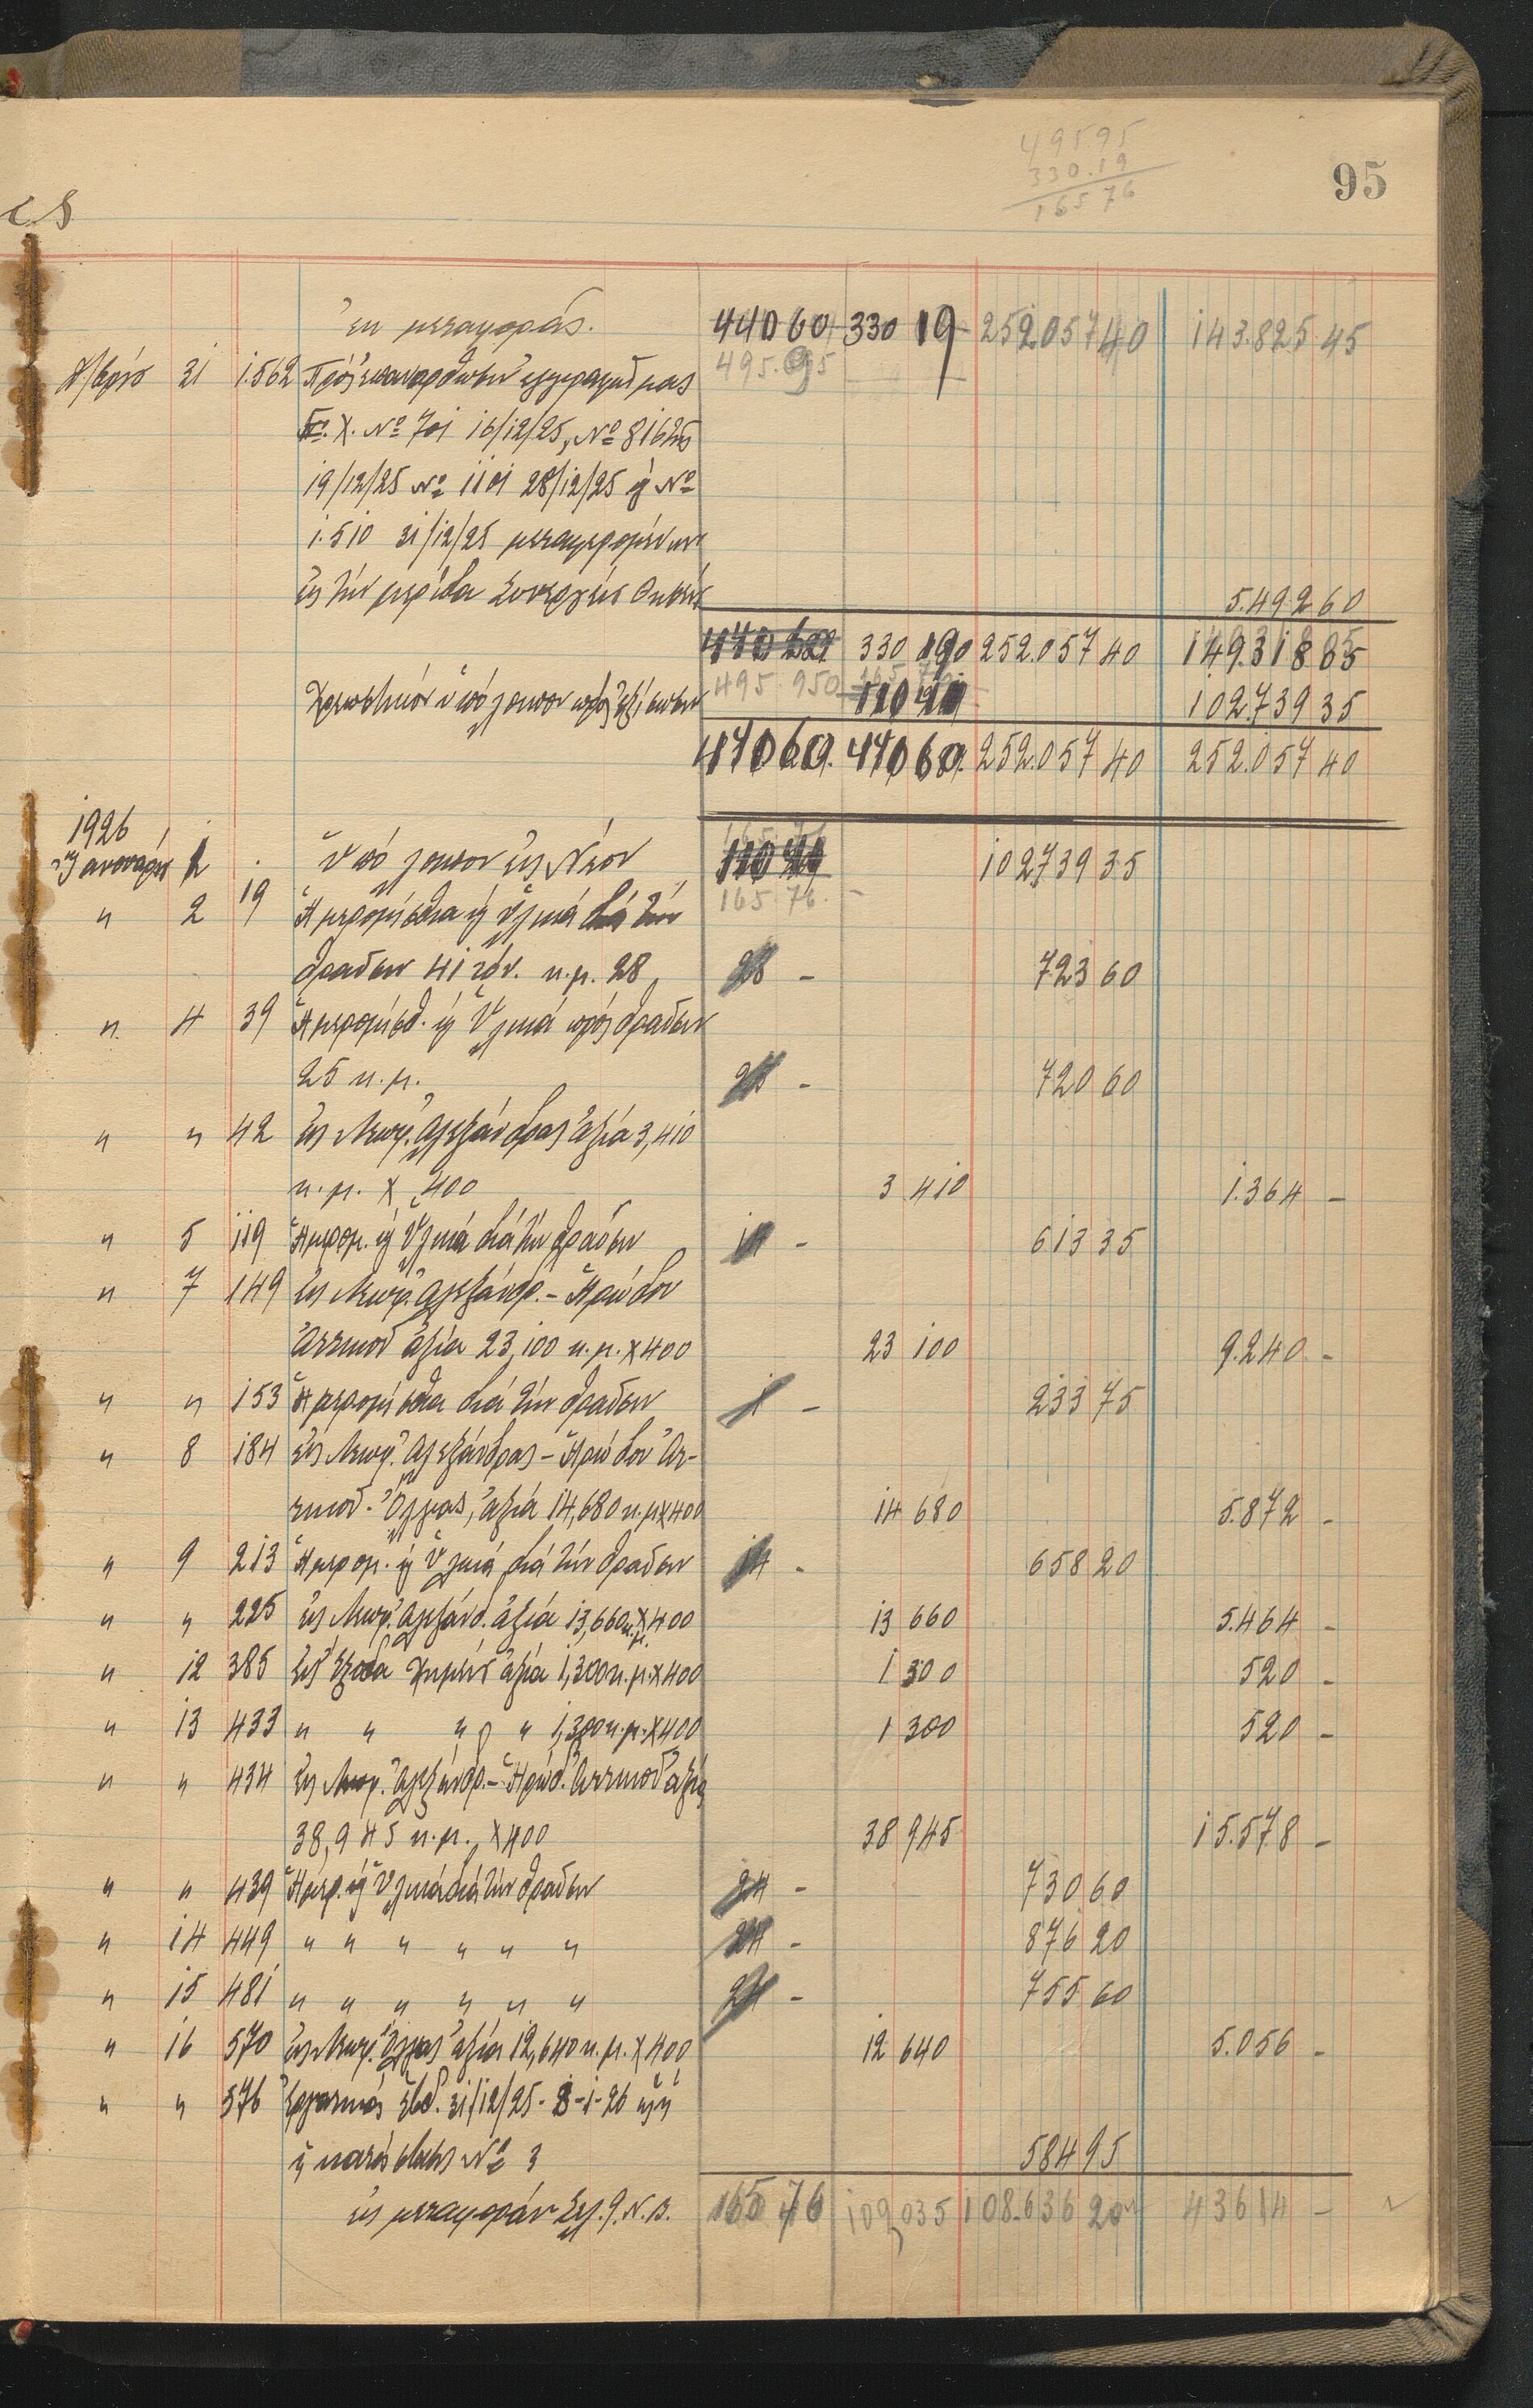 495.95
330.19
165 76
95
ἐκ μεταφορᾶς. 440 60 330 19 252.057 40 143.825 45
Δ/βρίο 31 1.562 Πρὸς ἐπανόρθωσιν ἐγγραφῶν μας 495.95
Χ. Nº 701 16/12/25, Nº 816
19/12/25 Nº 1101 28/12/25 ἢ Nº
1.510 31/12/25 μεταφερομένων
εἰς τὴν μερίδα 5.492 60
330 190 252.057 40 149.318 05
Χρεωστικὸν ὑπόλοιπον πρὸς ἐξίσωσιν 495.950 102.739 35
440 60. 440 60. 252.057 40 252.057 40
1926
Ἰανουαρίου ὑπόλοιπον εἰς Νέον 102.739 35
" 2 19 Ἡμερομίσθια ἢ ὑλικὰ διὰ τὴν 165.76. -
θραῦσιν 41 τόν. κ.μ. 28 28 - 723 60
" 4 39 Ἡμερομίσθ. ἢ ὑλικὰ πρὸς θραῦσιν
25 κ.μ. 25 - 720 60
" " 42 εἰς Λεωφ. Ἀλεξάνδρας ἀξία 3,410
κ.μ. χ 400 3 410 1.364 -
" 5 119 Ἡμερομ. ἢ ὑλικὰ διὰ τὴν θραῦσιν - 613 35
" 7 149 εἰς Λεωφ. Ἀλεξάνδρ. - Ἡρώδου
Ἀττικοῦ ἀξία 23,100 κ.μ. χ 400 23 100 9.240 -
" " 153 Ἡμερομίσθια διὰ τὴν θραῦσιν - 233 75
" 8 184 εἰς Λεωφ. Ἀλεξάνδρας - Ἡρώδου Ἀτ-
τικοῦ - Ὄλγας, ἀξία 14,680 κ.μ χ 400 14 680 5.872 -
" 9 213 Ἡμερομ. ἢ ὑλικὰ διὰ τὴν θραῦσιν 14 - 658 20
" " 225 εἰς Λεωφ. Ἀλεξάνδ. ἀξία 13,660 κ.μ. χ 400 13 660 5.464 -
" 12 385 εἰς ἔξοδα ἀξία 1,300 κ.μ. χ 400 1 300 520 -
" 13 433 " " " " 1,300 κ.μ. χ 400 1 300 520 -
" " 434 εἰς Λεωφ. Ἀλεξάνδρ. - Ἡρώδ. Ἀττικοῦ ἀξία
38,945 κ.μ. χ 400 38 945 15.578 -
" " 439 Ἡμερ. ἢ ὑλικὰ διὰ τὴν θραῦσιν 24 - 730 60
" 14 449 " " " " " " 24 - 876 20
" 15 481 " " " " " " 24 - 755 60
" 16 570 εἰς Λεωφ. Ὄλγας ἀξία 12,640 κ.μ. χ 400 12 640 5.056 -
" " 576 Ἐργατικὰ ἑβδ. 31/12/25 - 8-1-26
ἢ κατάστασις Nº 3 584 95
εἰς μεταφορὰν Σελ. 9. Ν.Β. 165 76 109,035 108.636 20 43614 -